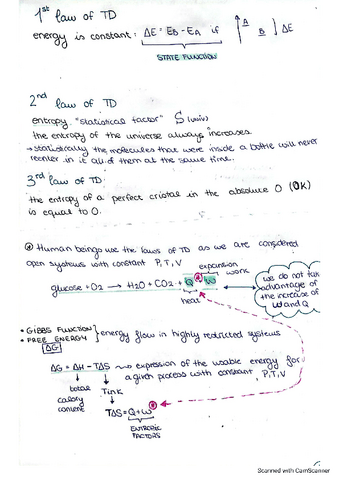 1st law of TD
energy is constant: ΔE = EB - EA if A B ] ΔE
STATE FUNCTION
2nd law of TD
entropy "statistical factor" S (univ)
the entropy of the universe always increases
→ statistically the molecules that were inside a bottle will never
reenter in it all of them at the same time.
3rd law of TD
the entropy of a perfect cristal in the absolute 0 (0K)
is equal to 0.
Human beings use the laws of TD as we are considered
open systems with constant P, T, V
expansion
work
glucose + O2 → H2O + CO2 + Q + W
heat
we do not take
advantage of
the increase of
W and Q
• GIBBS FUNCTION
• FREE ENERGY } energy flow in highly restricted systems
ΔG
ΔG = ΔH - TΔS → expression of the usable energy for
a given process with constant P, T, V
total
calory
content
T in K
TΔS = Q + W
ENTROPIC
FACTORS
Scanned with CamScanner